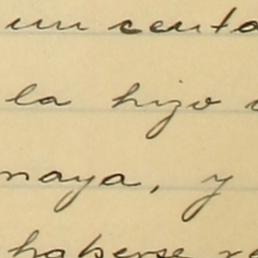 un centa
la hizo
naya, y
haberse re